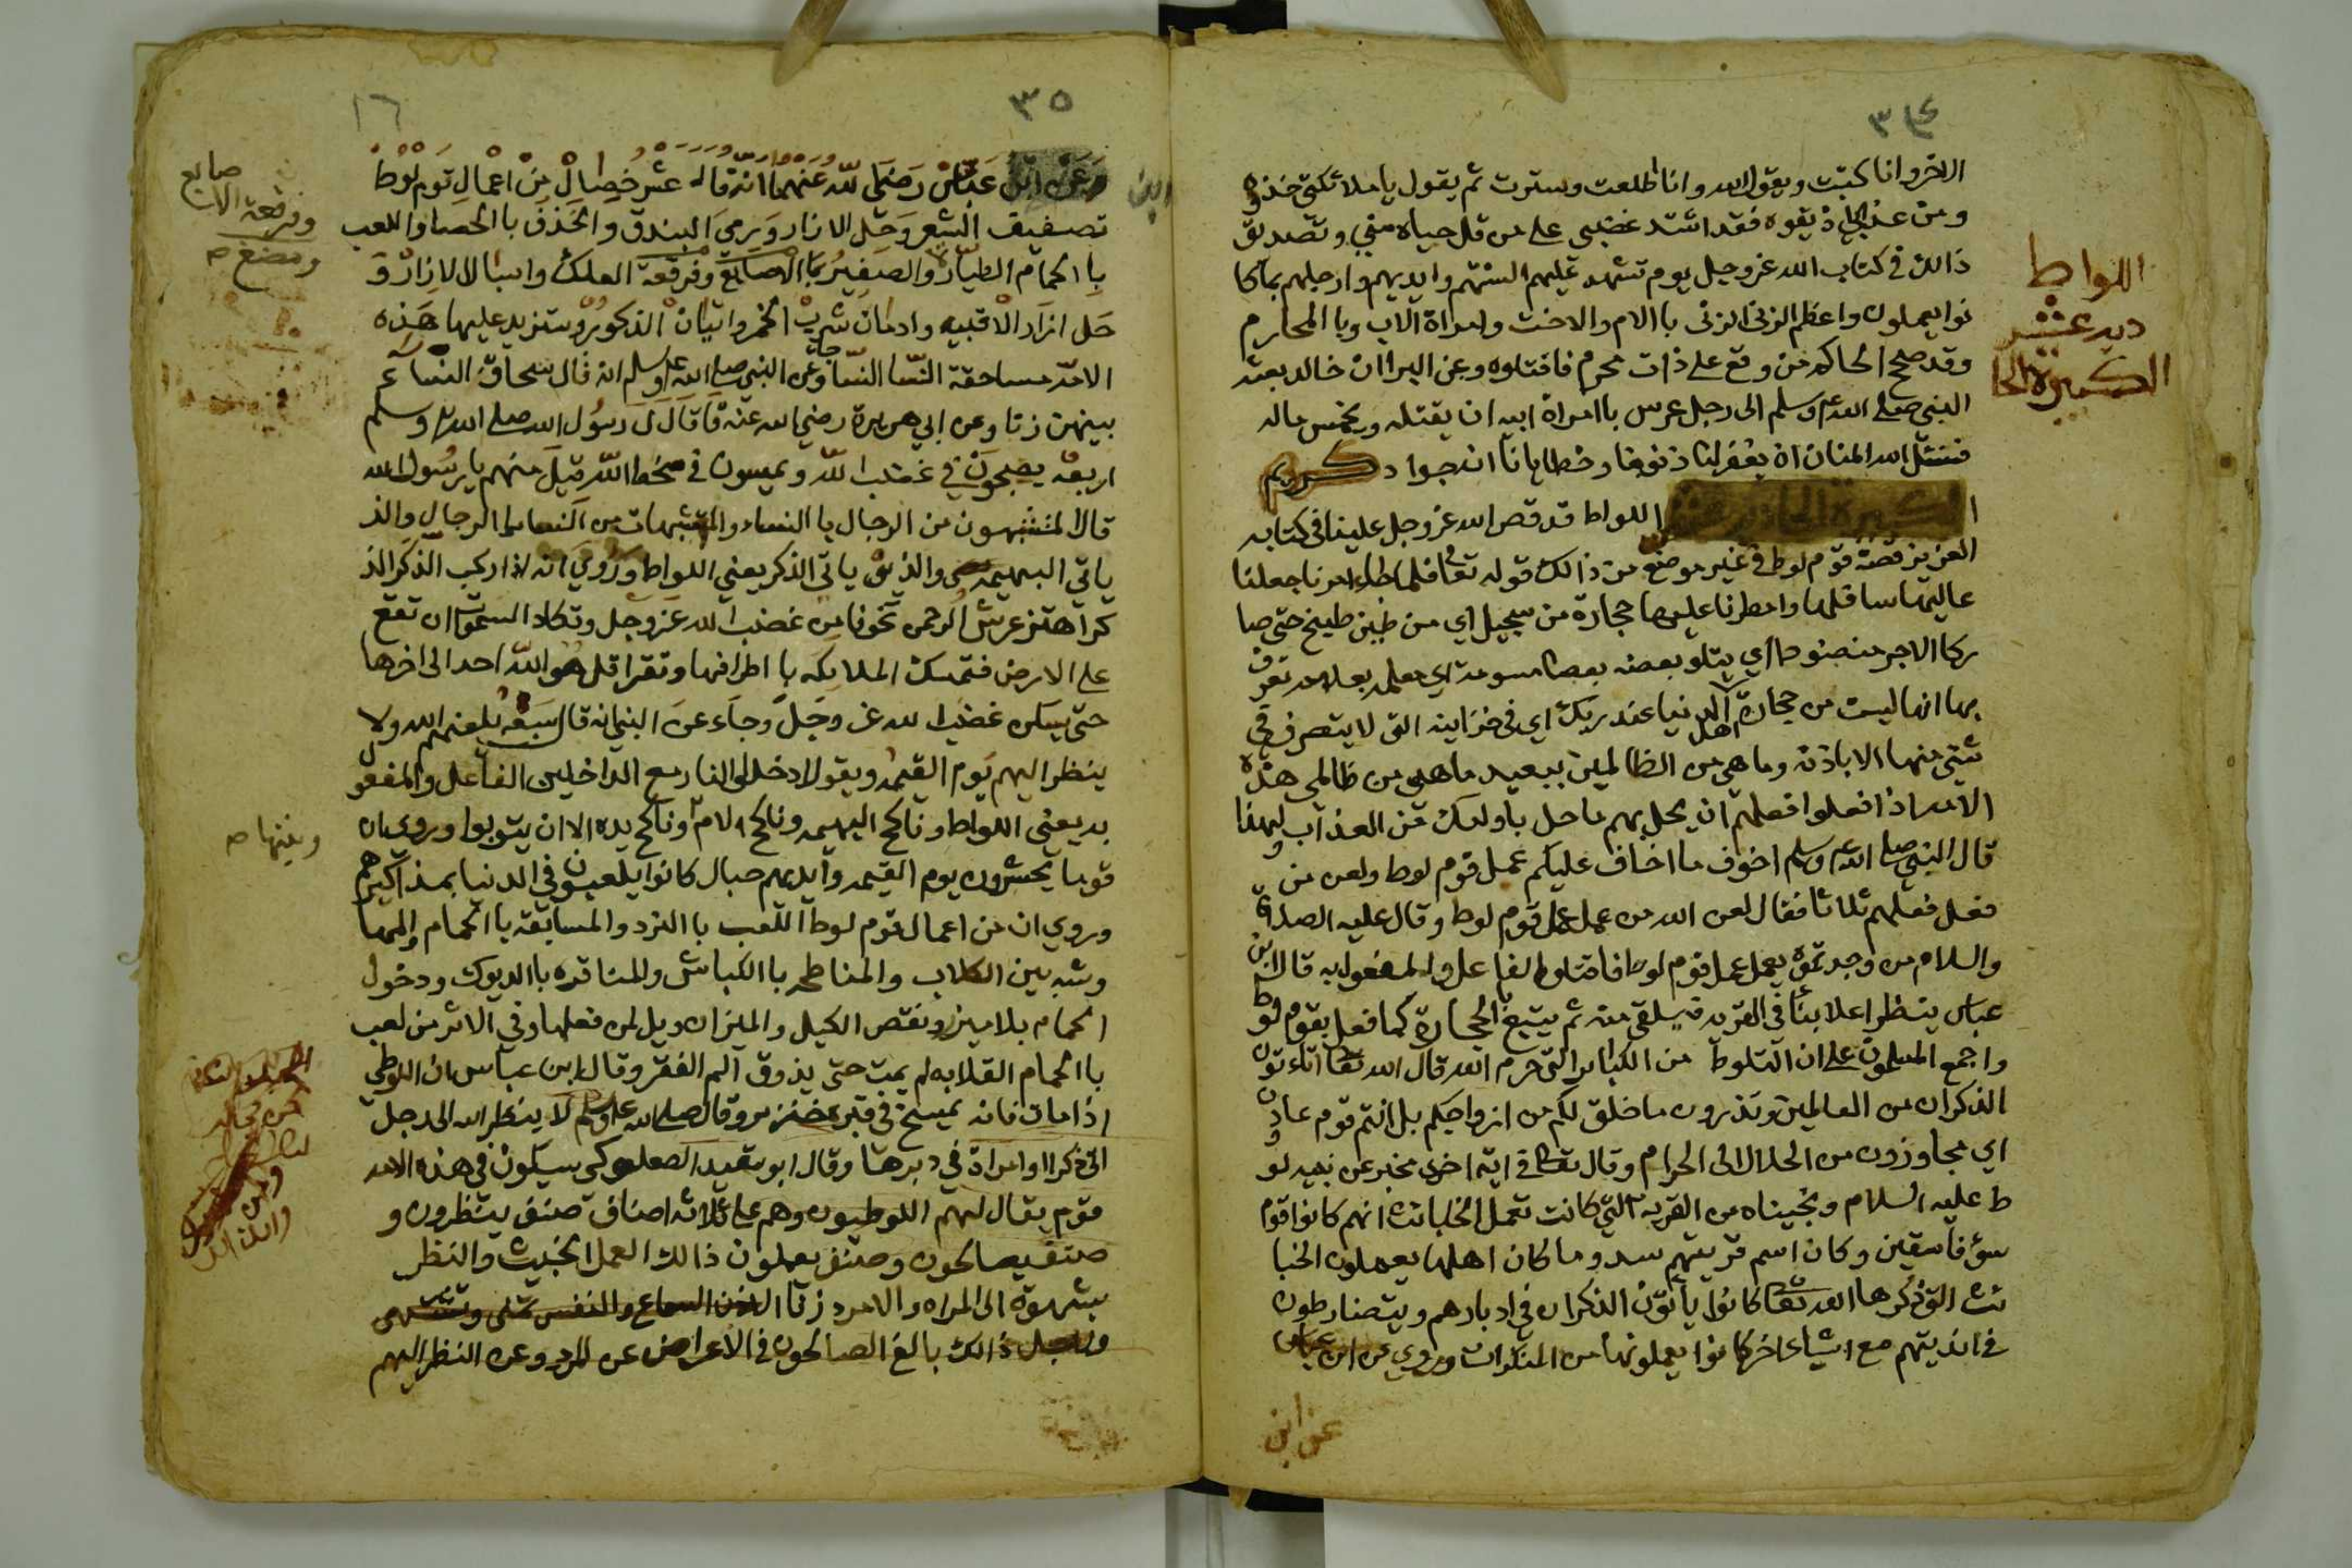 ٣٤
الاخر وانا كتبت ويقول الله وانا طلعت وسترت ثم يقول يا ملائكتي خذوه
ومن عذابي اذيقوه فقد اشتد غضبي على من قل حياه مني وتصديق
ذالك في كتاب الله عز وجل يوم تشهد عليهم السنتهم وايديهم وارجلهم بما كا
نوا يعملون واعظم الزنى الزنى باالام والاخت وامراة الاب وبا المحارم
وقد صحح الحاكم من وقع على ذات محرم فاقتلوه وعن البرا ان خاله بعثه
النبي صلى الله عليه وسلم الى رجل عرس باامراة ابيه ان يقتله ويخمس ماله
فنسئل الله المنان ان يغفر لنا ذنوبنا وخطايانا انه جواد كريم
الكبيرة الحادية عشر اللواط قد قص الله عز وجل علينا في كتابه
العزيز قصة قوم لوط في غير موضع من ذالك قوله تعا فلما جاء امرنا جعلنا
عاليها سافلها وامطرنا عليها حجارة من سجيل اي من طين طبخ حتى صا
ركا الاجر منضود اي يتلو بعضه بعضا مسومة اي معلمة بعلامة تعرف
بها انها ليست من حجارة اهل الدنيا عند ربك اي في خزاينه التي لا يتصرف في
شيئ منها الا باذنه وما هي من الظالمين ببعيد ما هي من ظالمي هذه
الامة اذا فعلوا فعلهم ان يحل بهم ما حل باوليك من العذاب ولهذا
قال النبي صلى الله عليه وسلم اخوف ما اخاف عليكم عمل قوم لوط ولعن من
فعل فعلهم ثلاثا فقال لعن الله من عمل عمل قوم لوط وقال عليه الصلاة
والسلام من وجدتموه يعمل عمل قوم لوط فاقتلوا الفاعل والمفعول به قال ابن
عباس ينظر اعلا بناً في القرية فيلقى منه ثم يتبع بالحجارة كما فعل بقوم لوط
واجمع المسلمون على ان التلوط من الكبائر التي حرم الله قال الله تعا اتاءتون
الذكران من العالمين وتذرون ما خلق لكم من ازواجكم بل انتم قوم عادون
اي مجاوزون من الحلال الى الحرام وقال تعا في اية اخرى مخبر عن نبيه لو
ط عليه السلام ونجيناه من القرية التي كانت تعمل الخبائث انهم كانوا قوم
سوء فاسقين وكان اسم قريتهم سدوما كان اهلها يعملون الخبا
ئث التي ذكرها الله تعا كانوا يأتون الذكران في ادبارهم ويتضارطون
في انديتهم مع اشياء اخر كانوا يعملونها من المنكرات وروي عن ابن عباس
عن ابن
اللواط
دية عشر
الكبيرة الحا
٣٥
١٦
وعن ابن عباس رضي الله عنهما انه قال عشر خصال من اعمال قوم لوط
تصفيف الشعر وحل الازار ورمي البندق والخذف باالحصا واللعب
باالحمام الطيارة والصفير باالاصابع وفرقعة العلك واسبال الازار و
حل ازرار الاقبيه وادمان شرب الخمر واتيان الذكور وستزيد عليها هذه
الامة مساحقة النسا النسا وعن النبي صلى الله عليه وسلم انه قال سحاق النساء
بينهن زنا وعن ابي هريرة رضي الله عنه قال قال رسول الله صلى الله عليه وسلم
اربعة يصبحون في غضب الله ويمسون في سخط الله قيل منهم يا رسول الله
قال المتشبهون من الرجال باالنساء والمتشبهات من النساء باالرجال والذ
ياتي البهيمة والذي ياتي الذكر يعني اللواط وروي انه اذا ركب الذكر الذ
كر اهتز عرش الرحمن خوفا من غضب الله عز وجل وتكاد السموات ان تقع
على الارض فتمسك الملايكه باطرافها وتقرا قل هو الله احد الى اخرها
حتى يسكن غضب الله عز وجل وجاء عن النبي انه قال سبعة يلعنهم الله ولا
ينظر اليهم يوم القيمة ويقول ادخلوا النار مع الداخلين الفاعل والمفعول
به يعني اللواط وناكح البهيمه وناكح الام وناكح يده الا ان يتوبوا وروي ان
قوما يحشرون يوم القيمه وايديهم حبال كانوا يلعبون في الدنيا بمذاكيرهم
وروي ان من اعمال قوم لوط اللعب باالنرد والمسابقة باالحمام والمها
رشه بين الكلاب والمناطحه باالكباش والمناقره باالديوك ودخول
الحمام بلا ميزر ونقص الكيل والميزان ويل لمن فعلها وفي الاثر من لعب
باالحمام القلابه لم يمت حتى يذوق الم الفقر وقال ابن عباس ان اللوطي
اذا مات فانه يمسخ في قبره خنزير وقال صلى الله عليه وسلم لا ينظر الله الى رجل
اتى ذكرا او امراة في دبرها وقال ابو سعيد الصعلوكي سيكون في هذه الامة
قوم يقال لهم اللوطيون وهم على ثلاثة اصناف صنف ينظرون و
صنف يصالحون وصنف يعملون ذالك العمل الخبيث والنظر
بشهوة الى المراه والامرد زنا
ولاجل ذالك بالغ الصالحون في الاعراض عن المرد وعن النظر اليهم
ابن
صابع
وفرقعة الا
ومضغ صح
وبنتها صح